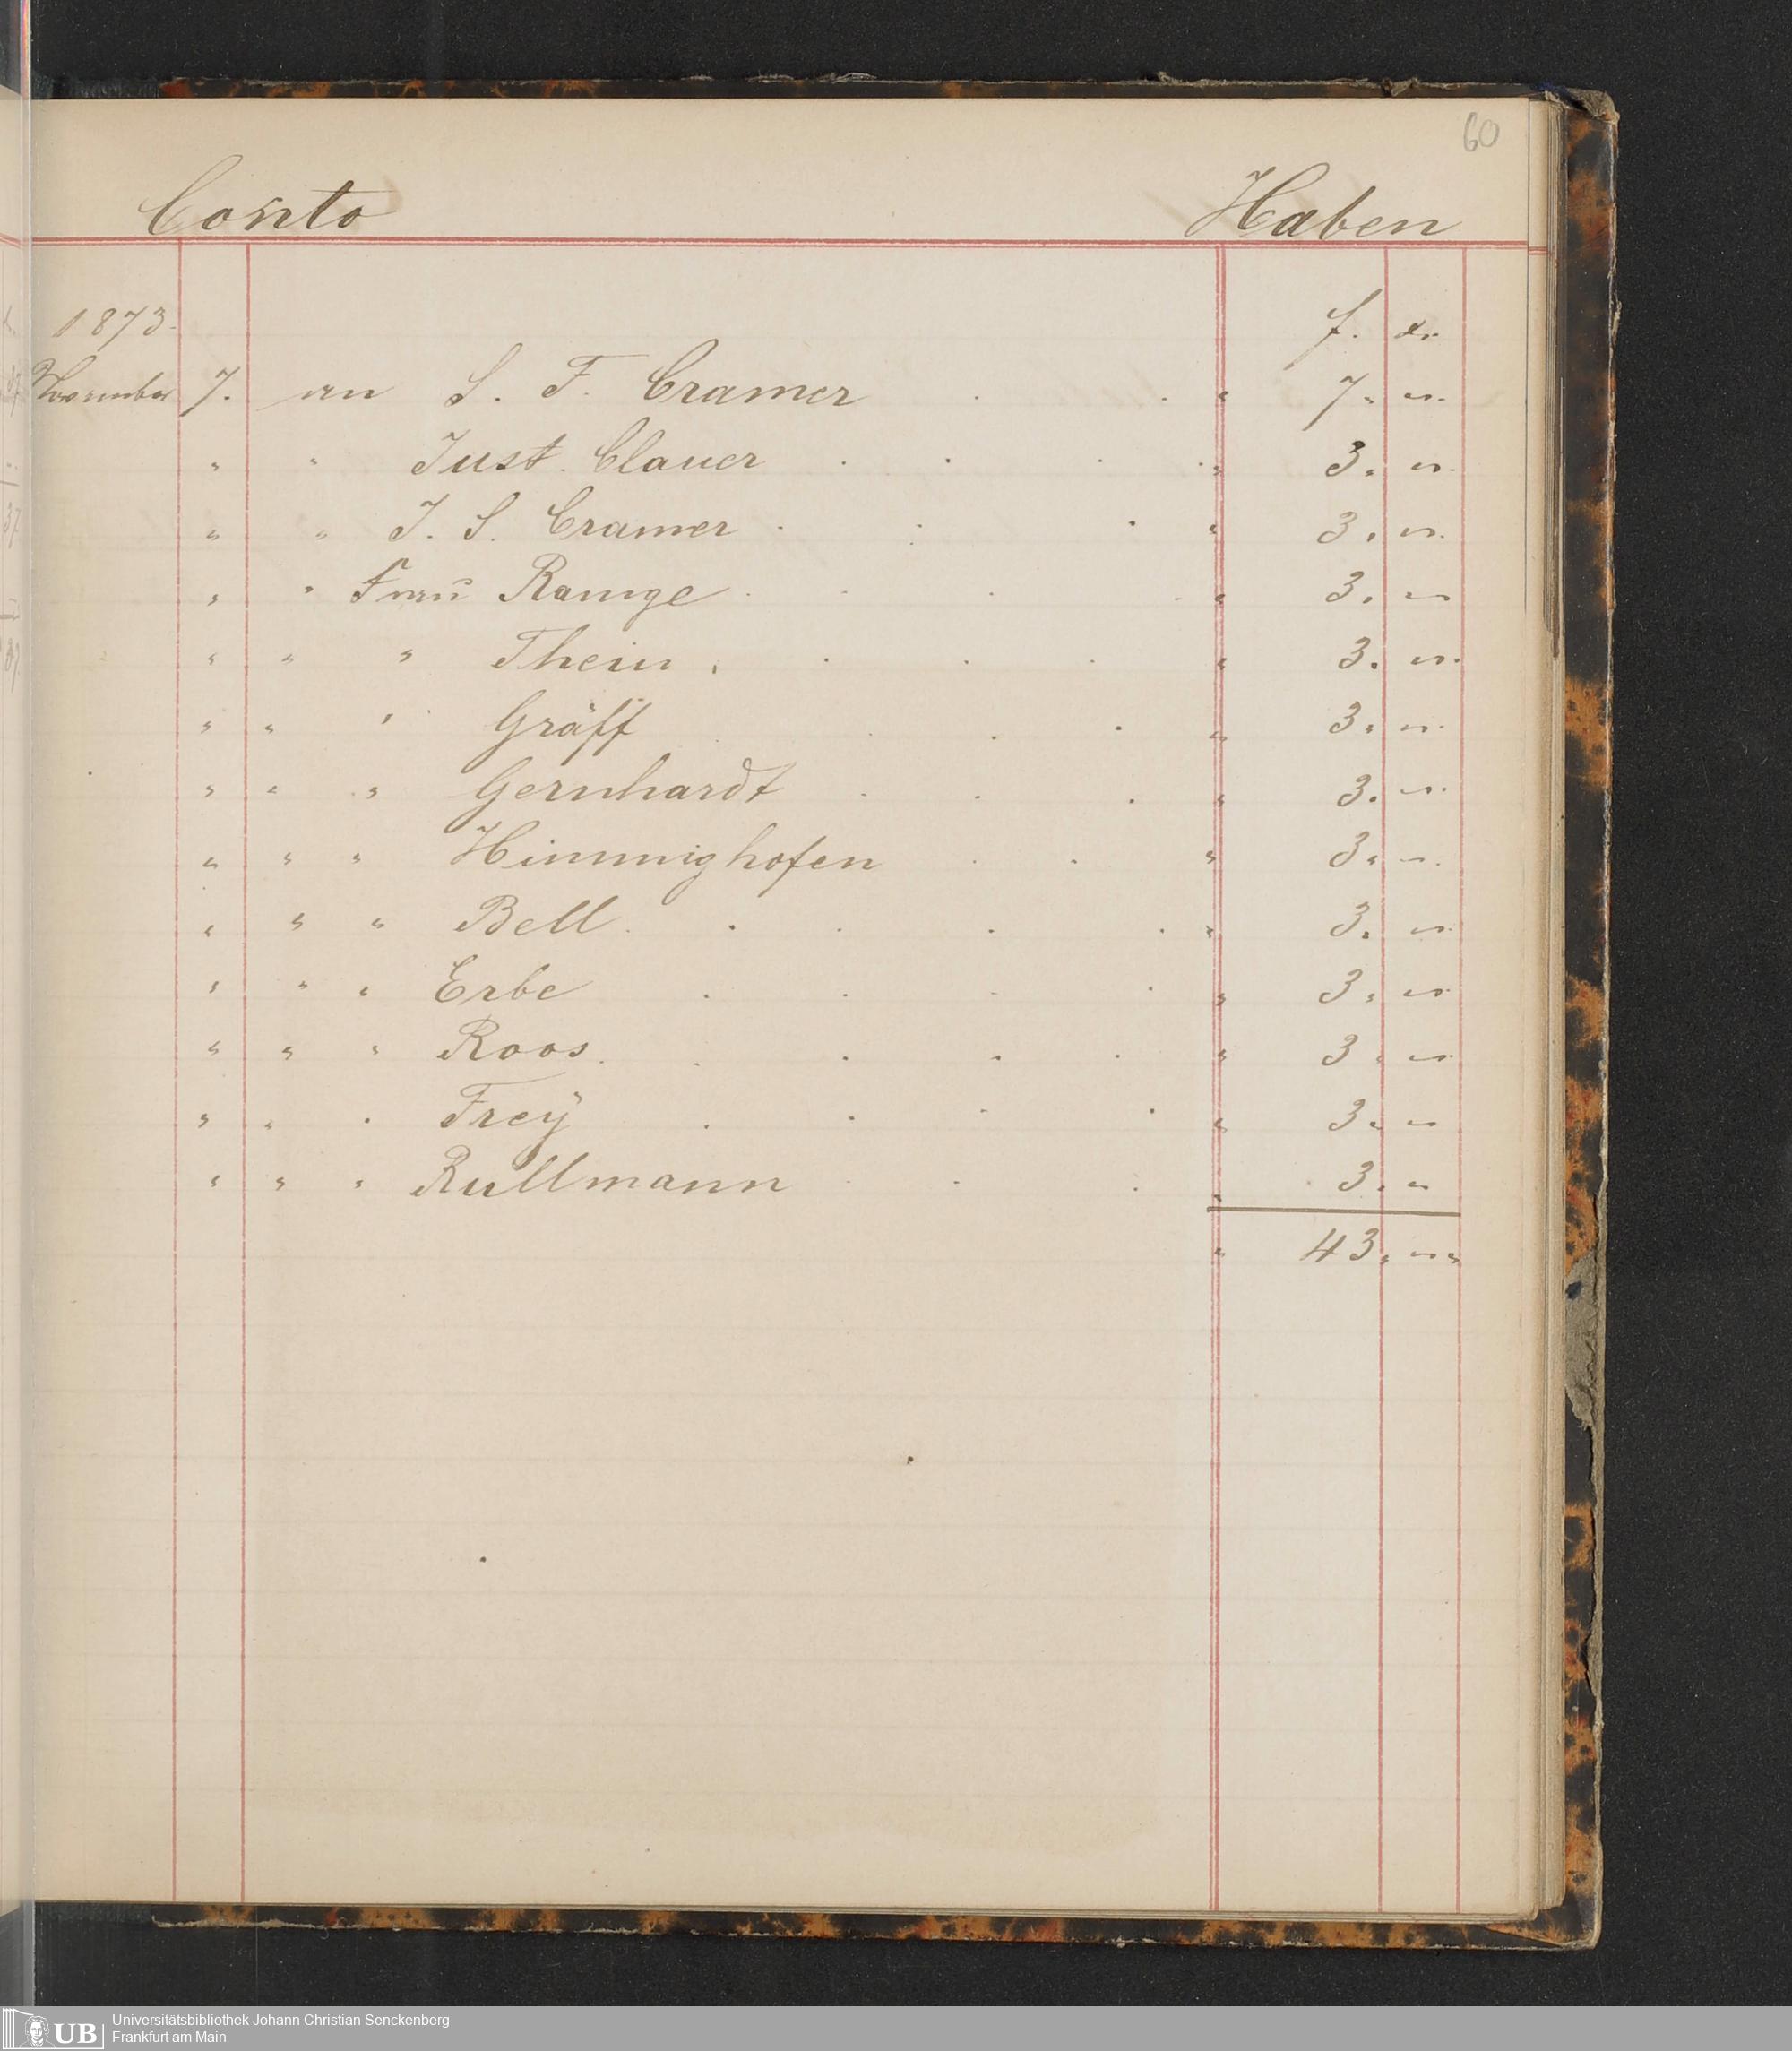 60
Conto Haben
1873. f. xr.
November 7. an S. F. Cramer . . " 7. ".
" " Just. Clauer . . . . " 3. ".
" " J. S. Cramer . . . " 3. ".
" " Frau Ramge . . . . " 3. "
" " " Thein . . . . " 3. ".
" " " Gräff . . . . " 3. ".
" " " Gernhardt . . . " 3. ".
" " " Himmighofen . . " 3. ".
" " " Bell . . . . . " 3. ".
" " " Erbe . . . . " 3. ".
" " " Roos . . . . . " 3. ".
" " " Frey . . . . " 3. "
" " " Rullmann . . . " 3. "
" 43. " "
UB Universitätsbibliothek Johann Christian Senckenberg
Frankfurt am Main